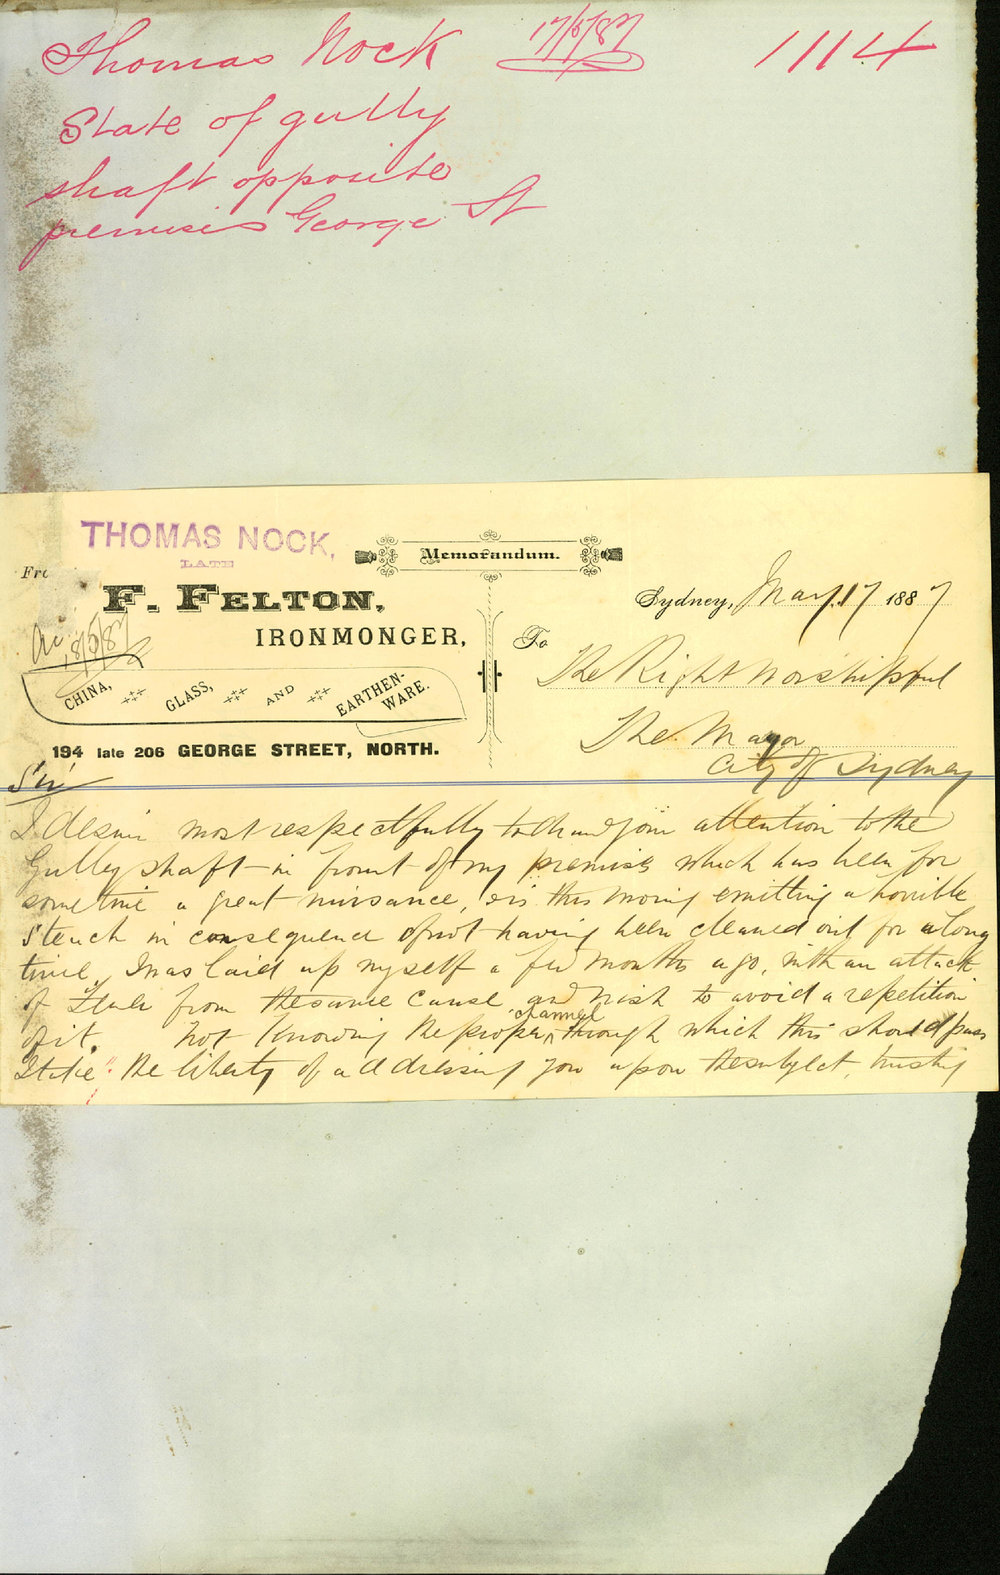 Thomas Nock 17/5/87 1114
State of gully
shaft opposite
premises George St
THOMAS NOCK,
LATE
Memorandum.
From
F. FELTON,
IRONMONGER,
18/5/87
CHINA, GLASS, AND EARTHEN-WARE.
194 late 206 GEORGE STREET, NORTH.
Sydney, May 17 1887
To
The Right Worshipful
The Mayor
City of Sydney
Sir
I desire most respectfully to draw your attention to the
Gulley shaft in front of my premises which has been for
some time a great nuisance, & is this morning emitting a horrible
stench in consequence of not having been cleaned out for a long
time, I was laid up myself a few months ago, with an attack
of from the same cause and wish to avoid a repetition
of it. Not knowing the proper channel through which this should pass
I take the liberty of addressing you upon the subject, trusting